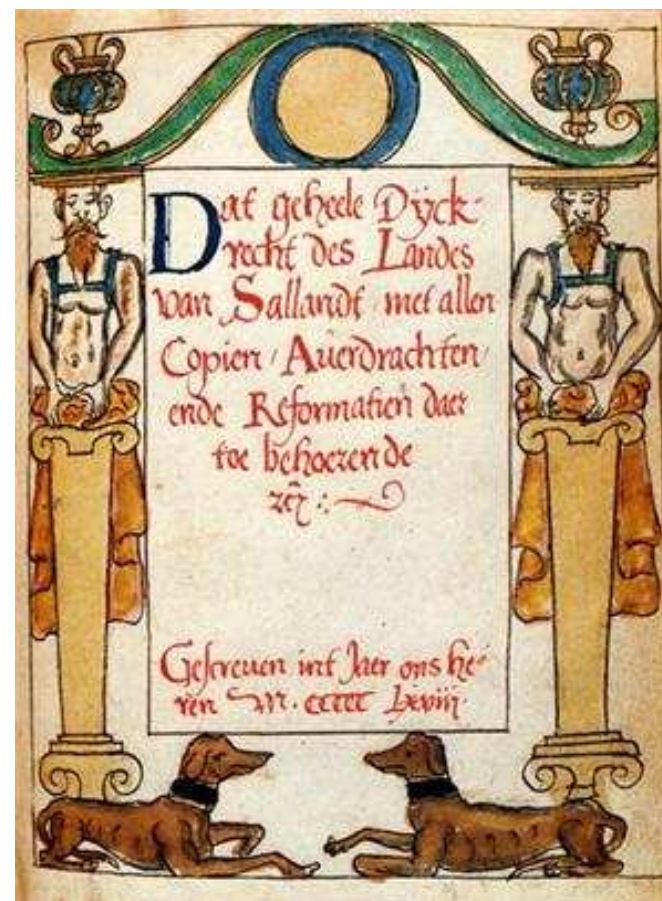 Dat geheele Dÿck-
recht des Landes
van Sallandt met allen
Copien / Auerdrachten /
ende Reformatien daer
toe behoerende
etc̃ :~
Gescreuen int Jaer ons he-
ren M. ccccc lxviij.